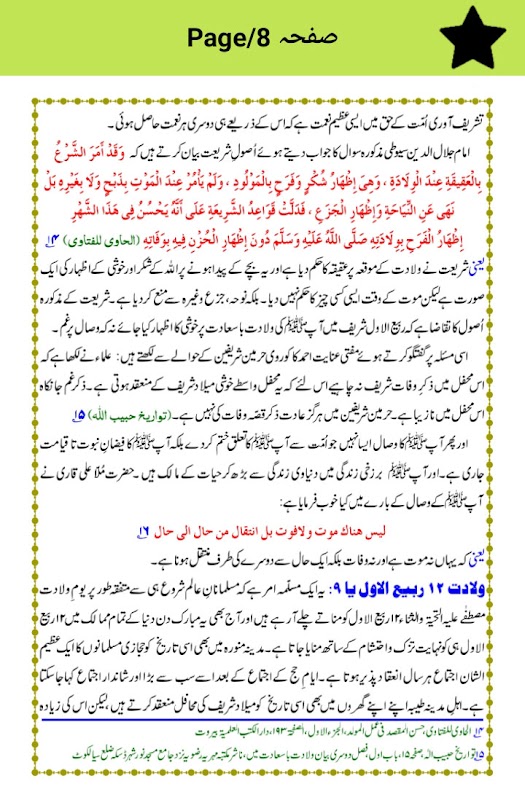 صفحہ Page/8
تشریف آوری اُمت کے حق میں ایسی عظیم نعمت ہے کہ اس کے ذریعے ہی دوسری ہر نعمت حاصل ہوئی۔
امام جلال الدین سیوطی مذکورہ سوال کا جواب دیتے ہوئے اُصولِ شریعت بیان کرتے ہیں کہ وَقَدْ أَمَرَ الشَّرْعُ
بِالْعَقِيقَةِ عِنْدَ الْوِلَادَةِ ، وَهِيَ إِظْهَارُ شُكْرٍ وَفَرَحٍ بِالْمَوْلُودِ ، وَلَمْ يَأْمُرْ عِنْدَ الْمَوْتِ بِذَبْحٍ وَلَا بِغَيْرِهِ بَلْ
نَهَى عَنِ النِّيَاحَةِ وَإِظْهَارِ الْجَزَعِ ، فَدَلَّتْ قَوَاعِدُ الشَّرِيعَةِ عَلَى أَنَّهُ يَحْسُنُ فِي هَذَا الشَّهْرِ
إِظْهَارُ الْفَرَحِ بِوِلَادَتِهِ صَلَّى اللَّهُ عَلَيْهِ وَسَلَّمَ دُونَ إِظْهَارِ الْحُزْنِ فِيهِ بِوَفَاتِهِ (الحاوی للفتاوی) ۱۴
یعنی شریعت نے ولادت کے موقعہ پر عقیقہ کا حکم دیا ہے اور یہ بچے کے پیدا ہونے پر اللہ کے شکر اور خوشی کے اظہار کی ایک
صورت ہے لیکن موت کے وقت ایسی کسی چیز کا حکم نہیں دیا۔ بلکہ نوحہ، جزع وغیرہ سے منع کر دیا ہے۔ شریعت کے مذکورہ
اُصول کا تقاضا ہے کہ ربیع الاول شریف میں آپ ﷺ کی ولادت باسعادت پر خوشی کا اظہار کیا جائے نہ کہ وصال پر غم۔
اسی مسئلہ پر گفتگو کرتے ہوئے مفتی عنایت احمد کاکوروی حرمین شریفین کے حوالے سے لکھتے ہیں: علماء نے لکھا ہے کہ
اس محفل میں ذکرِ وفات شریف نہ چاہیے اس لئے کہ یہ محفل واسطے خوشی میلاد شریف کے منعقد ہوتی ہے۔ ذکرِ غم جانکاہ
اس محفل میں نازیبا ہے۔ حرمین شریفین میں ہرگز عادت ذکر قصہ وفات کی نہیں ہے۔ (تواریخ حبیب اللہ) ۱۵
اور پھر آپ ﷺ کا وصال ایسا نہیں جو اُمت سے آپ ﷺ کا تعلق ختم کر دے بلکہ آپ ﷺ کا فیضانِ نبوت تا قیامت
جاری ہے۔ اور آپ ﷺ برزخی زندگی میں دنیاوی زندگی سے بڑھ کر حیات کے مالک ہیں۔ حضرت مُلّا علی قاری نے
آپ ﷺ کے وصال کے بارے میں کیا خوب فرمایا ہے:
لیس هناك موت ولافوت بل انتقال من حال الی حال ۱۶
یعنی کہ یہاں نہ موت ہے اور نہ وفات بلکہ ایک حال سے دوسرے کی طرف منتقل ہونا ہے۔
ولادت ۱۲ ربیع الاول یا ۹: یہ ایک مسلّمہ امر ہے کہ مسلمانانِ عالم شروع ہی سے متفقہ طور پر یومِ ولادت
مصطفیٰ علیہ التحیۃ والثناء ۱۲ ربیع الاول کو مناتے چلے آ رہے ہیں اور آج بھی یہ مبارک دن دنیا کے تمام ممالک میں ۱۲ ربیع
الاول ہی کو نہایت تزک و احتشام کے ساتھ منایا جاتا ہے۔ مدینہ منورہ میں بھی اسی تاریخ کو حجازی مسلمانوں کا ایک عظیم
الشان اجتماع ہر سال انعقاد پذیر ہوتا ہے۔ ایامِ حج کے اجتماع کے بعد اسے سب سے بڑا اور شاندار اجتماع کہا جا سکتا
ہے۔ اہلِ مدینہ طیبہ اپنے اپنے گھروں میں بھی اسی تاریخ کو میلاد شریف کی محافل منعقد کرتے ہیں، لیکن اس کی زیادہ
۱۴ الحاوی للفتاوی، حسن المقصد فی عمل المولد، الجزء الاول، الصفحۃ ۱۹۳، دار الکتب العلمیۃ بیروت
۱۵ تواریخ حبیب الٰہ، صفحہ ۱۵، باب اول، فصل دوسری بیان ولادت باسعادت میں، ناشر مکتبہ مہریہ رضویہ نزد جامع مسجد نور شہر ڈسکہ ضلع سیالکوٹ